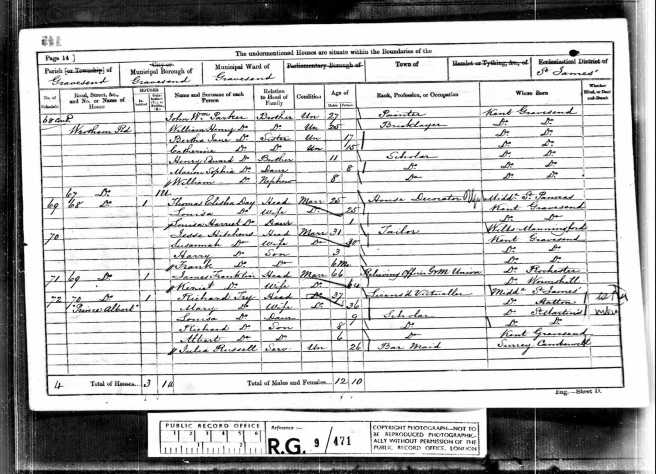 Page 14]
The undermentioned Houses are situate within the Boundaries of the
Parish [or Township] of
Gravesend
City or
Municipal Borough of
Gravesend
Municipal Ward of
Gravesend
Parliamentary Borough of
Town of
Hamlet or Tything, &c., of
Ecclesiastical District of
St James'
No. of Schedule
Road, Street, &c., and No. or Name of House
HOUSES
Name and Surname of each Person
Relation to Head of Family
Condition
Age of
Rank, Profession, or Occupation
Where Born
Whether Blind, or Deaf-and-Dumb
68 Cont John Wm Parker Brother Un 27 Painter Kent Gravesend
Wrotham Rd William Henry Do Do Un 25 Bricklayer Do Do
Bertha Jane Do Sister Un 17 Do Do
Catherine Do Do Un 15 Do Do
Henry Do Brother 11 Scholar Do Do
Sophia Do Daur 8 Do Do Do
William Do Nephew 8 Do Do Do
67 Do 1U
69 68 Do 1 Thomas Elisha Day Head Marr 25 House Decorator Middx St Pancras
Louisa Do Wife Do 25 Kent Gravesend
Louisa Harriet Do Daur 1 Do Do
70 Jesse Hitchens Head Marr 31 Tailor Wilts
Susannah Do Wife Do 30 Kent Gravesend
Harry Do Son 3 Do Do
Frank Do Do 6 Mo Do Do
71 69 Do 1 James Franklin Head Marr 66 Relieving Officer Union Do Rochester
Do Wife Do 64 Do
72 70 Do 1 Richard Head Do 37 Licensed Victualler Middx St James'
"Prince Albert" Mary Do Wife Do 36 Do Hatton
Louisa Do Daur 9 Scholar Do St Martins
Richard Do Son 8 Do Do Do
Albert Do Do 6 Do Kent Gravesend
Julia Russell Serv Un 26 Bar Maid Surrey Camberwell
4 Total of Houses... 3 1U Total of Males and Females... 12 10
Eng.—Sheet D.
PUBLIC RECORD OFFICE
1 2 3 4 5 6
1 2
Reference :-
R.G. 9/471
COPYRIGHT PHOTOGRAPH—NOT TO
BE REPRODUCED PHOTOGRAPHIC-
ALLY WITHOUT PERMISSION OF THE
PUBLIC RECORD OFFICE, LONDON